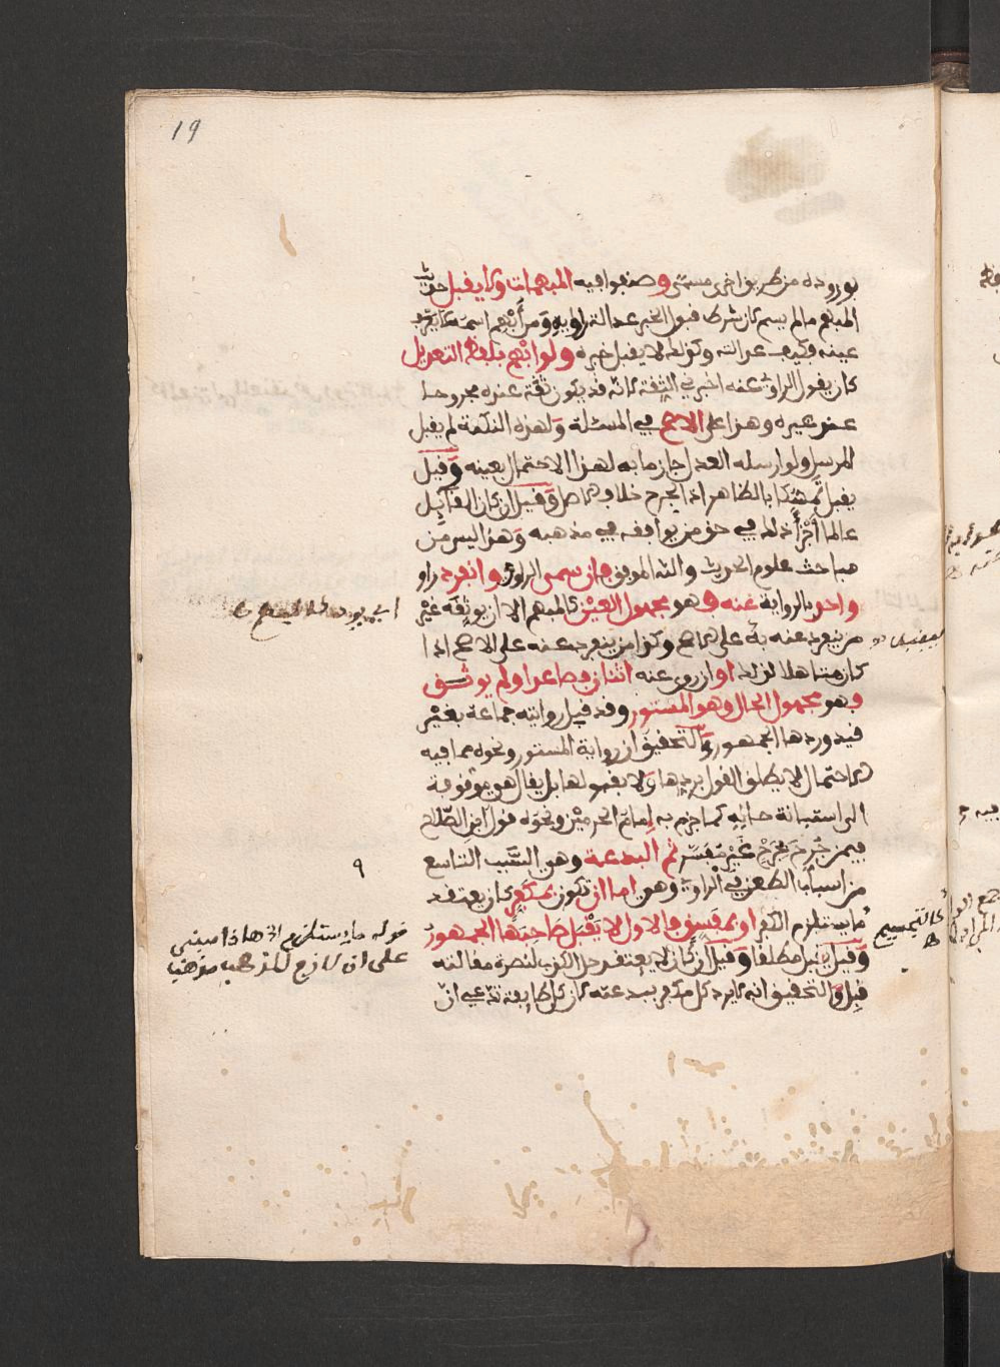 19
بوروده من طريق اخرى مسمى وصنفوا فيه المبهمات ولا يقبل حديث
المبهم مالم يسم لان شرط قبول الخبر عدالة راويه ومن أبهم اسمه لا يعرف
عينه فكيف عدالته وكذا لا يقبل خبره ولو ابهم بلفظ التعديل
كان يقول الراوي عنه اخبرني الثقة لانه قد يكون ثقة عنده مجروحا
عند غيره وهذا على الاصح في المسئلة ولهذه النكتة لم يقبل
المرسل ولو ارسله العدل جازما به لهذا الاحتمال بعينه وقيل
يقبل تمسكا بالظاهر اذ الجرح خلاف الاصل وقيل ان كان القائل
عالما أجزأ ذلك في حق من يوافقه في مذهبه وهذا ليس من
مباحث علوم الحديث والله الموفق فان سمى الراوي وانفرد راو
واحد بالرواية عنه فهو مجهول العين كالمبهم الا ان يوثقه غير
من ينفرد عنه به على الاصح وكذا من ينفرد عنه على الاصح اذا
كان متاهلا لذلك او ان روى عنه اثنان فصاعدا ولم يوثق
فهو مجهول الحال وهو المستور وقد قبل روايته جماعة بغير
قيد وردها الجمهور والتحقيق ان رواية المستور ونحوه مما فيه
الاحتمال لا يطلق القول بردها ولا بقبولها بل يقال هي موقوفة
الى استبانة حاله كما جزم به إمام الحرمين ونحوه قول ابن الصلاح
فيمن جرح بجرح غير مفسر ثم البدعة وهي السبب التاسع
٩
من اسباب الطعن في الراوي وهي اما ان تكون بمكفر كان يعتقد
ما يستلزم الكفر او بمفسق فالاول لا يقبل صاحبها الجمهور
كالتجسيم
قوله ما يستلزم الخ هاذا مبني
على ان لازم المذهب مذهب
وقيل يقبل مطلقا وقيل ان كان لا يعتقد حل الكذب لنصرة مقالته
قبل والتحقيق انه لا يرد كل مكفر ببدعته لان كل طايفة تدعي ان